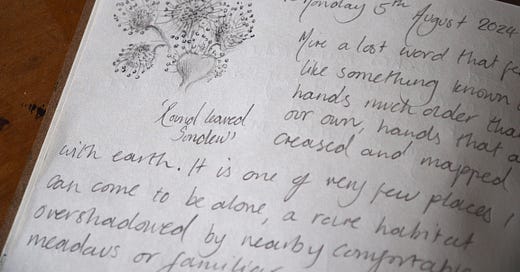 Monday 5th August 2024
More a lost word that fe
like something known
hands much older than
our own, hands that a
creased and mapped
'Round leaved
Sundew'
with earth. It is one of very few places I
can come to be alone, a rare habitat
overshadowed by nearby comfortable
meadows or familiar